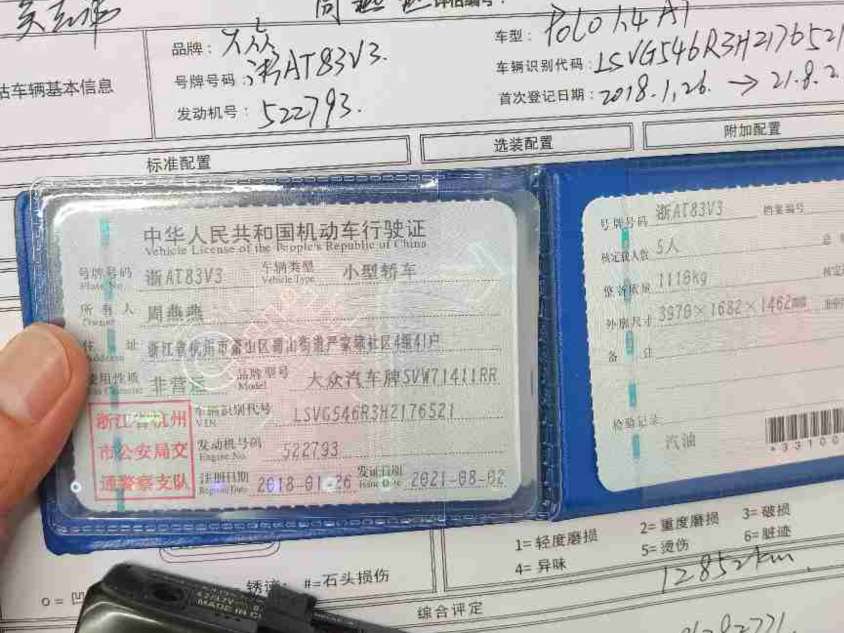 品牌：大众
车型：POLO 1.4 AT
号牌号码：浙AT83V3.
车辆识别代码：LSVG546R3H2176521
估车辆基本信息
发动机号：522793.
首次登记日期：2018.1.26. → 21.8.2
标准配置
选装配置
附加配置
中华人民共和国机动车行驶证
Vehicle License of the People's Republic of China
号牌号码 浙AT83V3 车辆类型 小型轿车
Plate No. Vehicle Type
所有人 周燕燕
Owner
住址 浙江省杭州市萧山区蜀山街道严家埭社区4组41户
Address
使用性质 非营运 品牌型号 大众汽车牌SVW71411RR
Model
浙江省杭州市公安局交通警察支队
车辆识别代号 LSVG546R3H2176521
VIN
发动机号码 522793
Engine No.
注册日期 2018-01-26 发证日期 2021-08-02
Register Date Issue Date
号牌号码 浙AT83V3 档案编号
核定载人数 5人
整备质量 1116kg
外廓尺寸 3970×1682×1462mm
备注
检验记录
汽油
*33100
1=轻度磨损 2=重度磨损 3=破损
4=异味 5=烫伤 6=脏迹
#=石头损伤
12852km
综合评定
MADE IN C